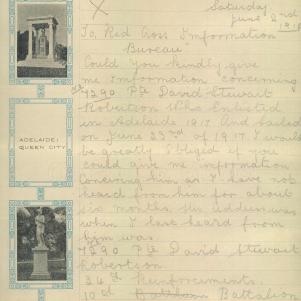 Saturday
June 2nd
To, Red Cross Information
Bureau"
Could you kindly give
me Information concerning
7290 Pte David Stewart
Robertson Who Enlisted
in Adelaide 1917 And sailed
on June 23rd of 1917. I would
be greatly obliged if you
could give me Information
Concirning him as I have not
heard from him for about
six months. His address was
when I last heard from
him was.
7290 Pte David Stewart
Robertson
24th Reinforcements.
10th Battalion
ADELAIDE:
QUEEN CITY